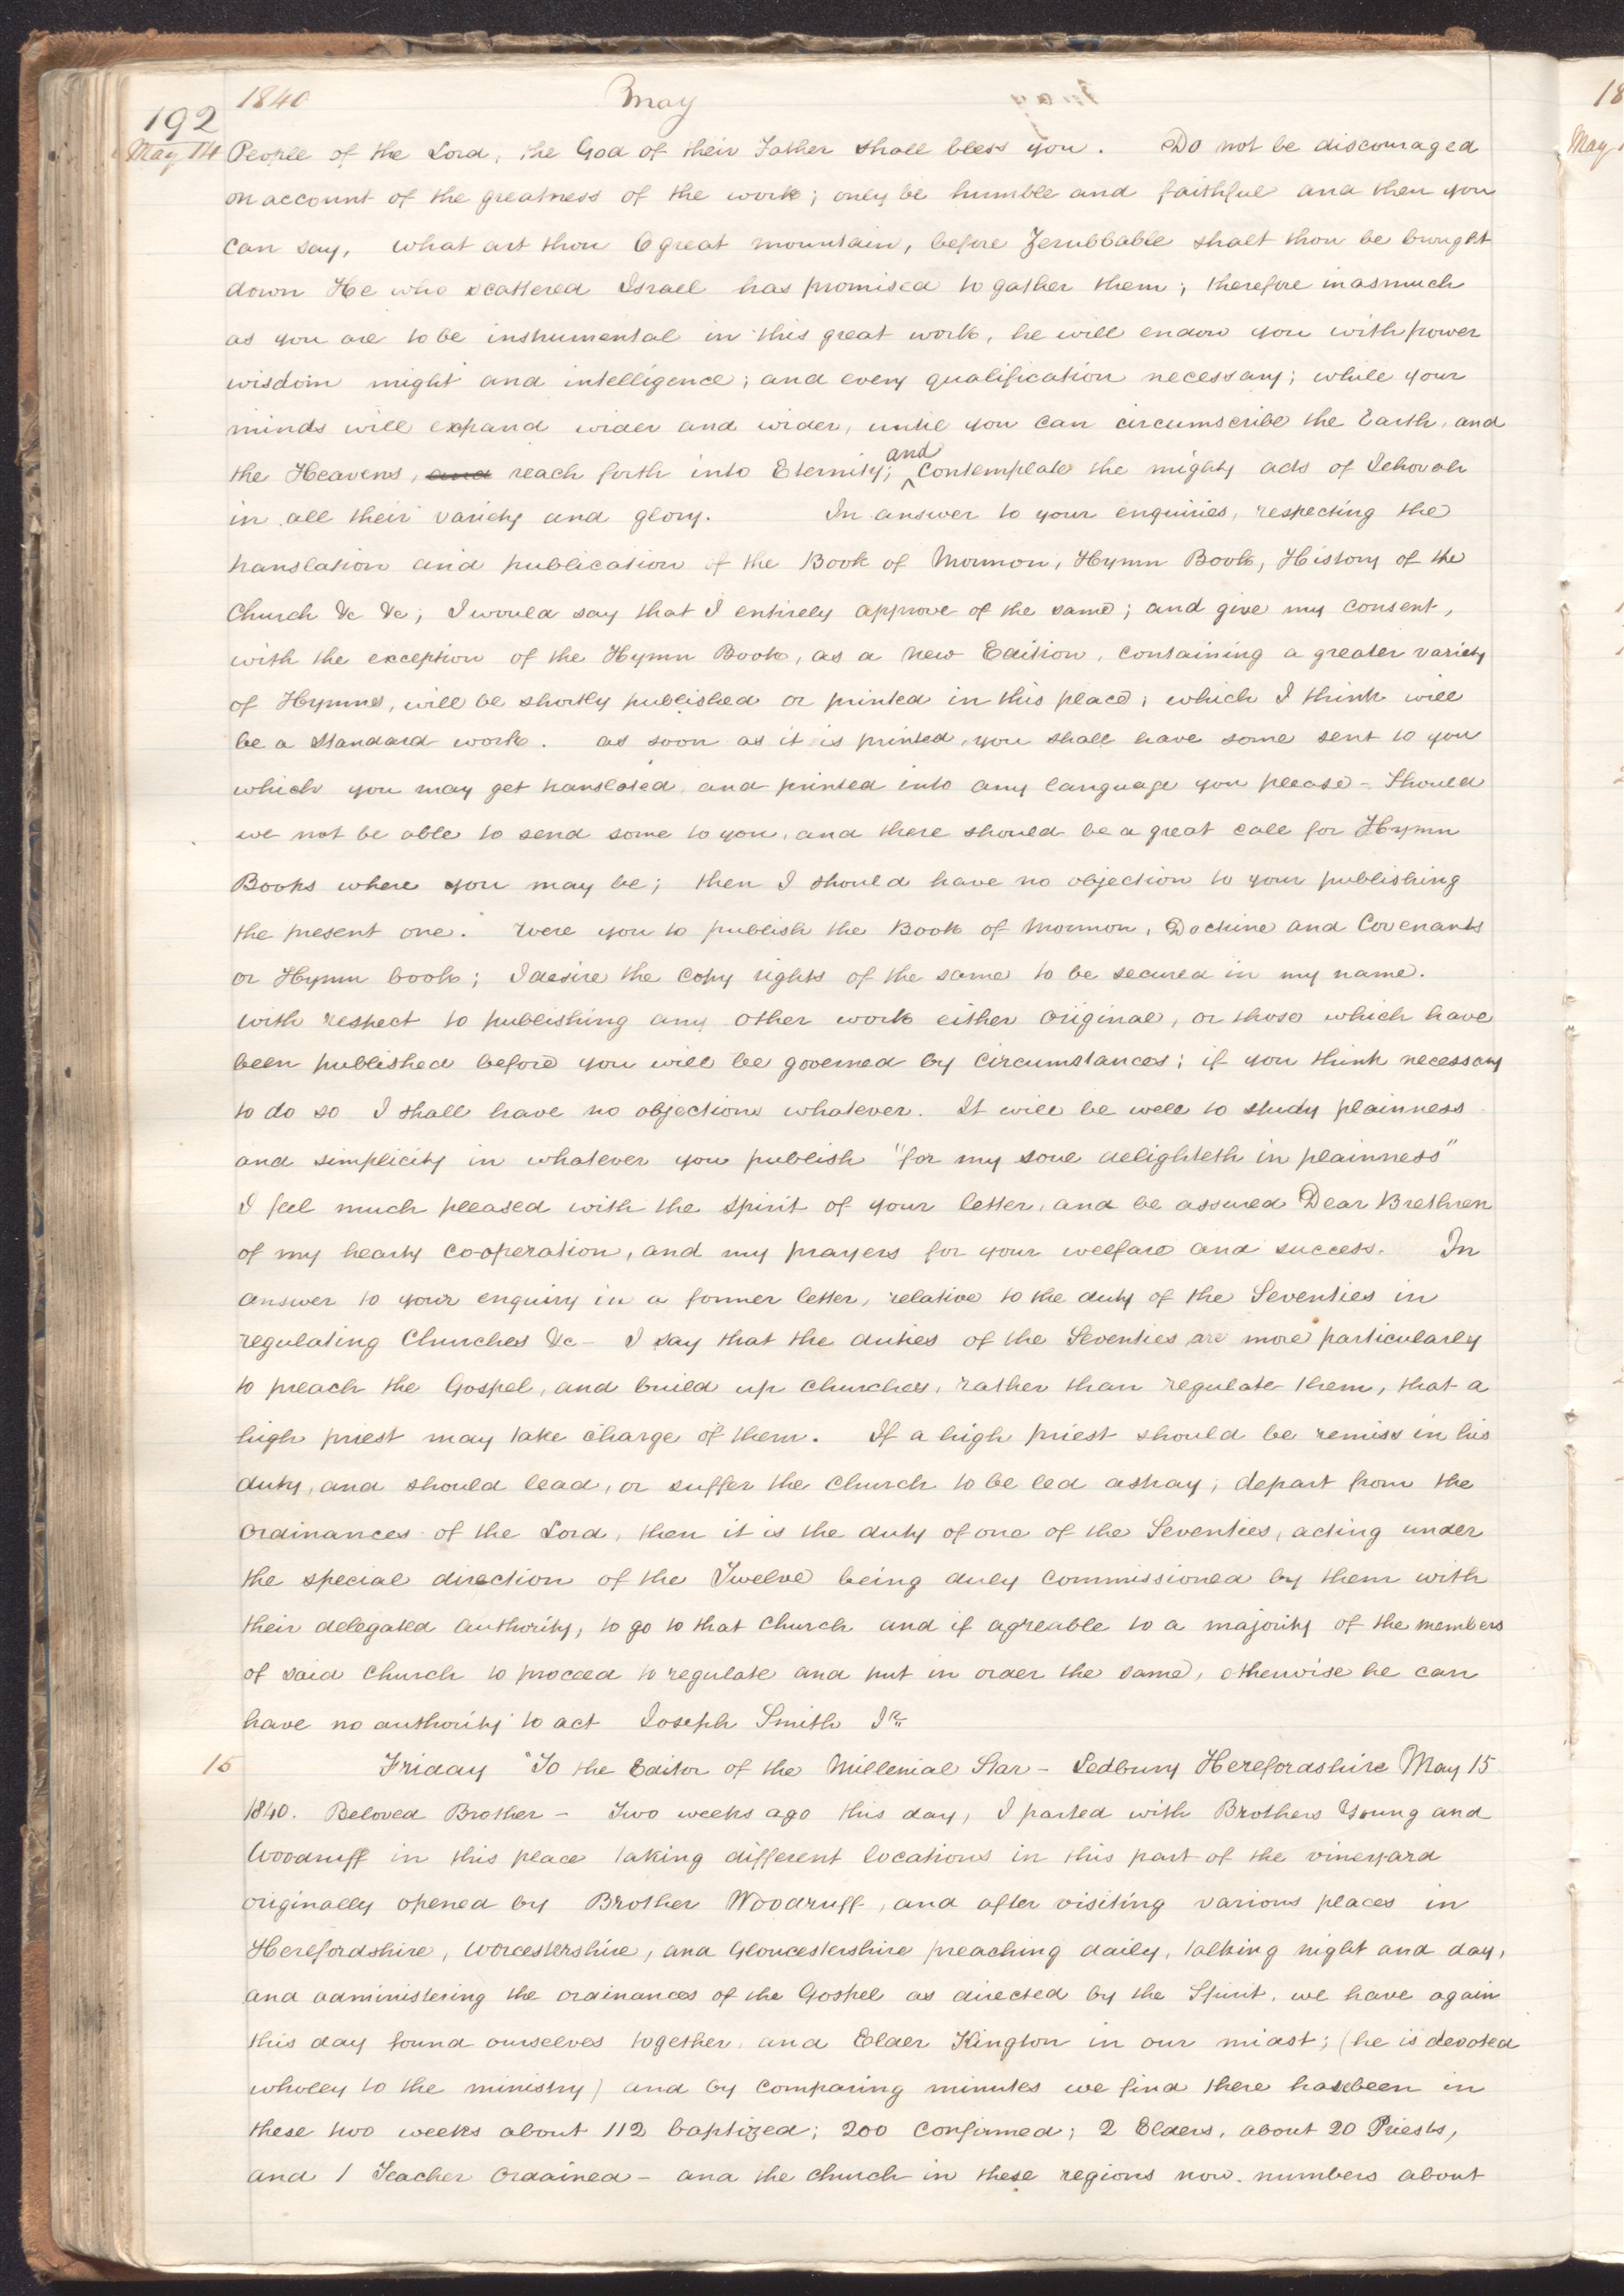 1840 May
192
May 14 People of the Lord, the God of their Father shall bless you. Do not be discouraged
on account of the greatness of the work; only be humble and faithful and then you
can say, what art thou O great mountain, before Zerubbable shalt thou be brought
down He who scattered Israel has promised to gather them; therefore inasmuch
as you are to be instrumental in this great work, he will endow you with power
wisdom might and intelligence; and every qualification necessary; while your
minds will expand wider and wider, until you can circumscribe the Earth, and
the Heavens, and reach forth into Eternity; and contemplate the mighty acts of Jehovah
in all their variety and glory. In answer to your enquiries, respecting the
translation and publication of the Book of Mormon, Hymn Book, History of the
Church &c &c; I would say that I entirely approve of the same; and give my consent,
with the exception of the Hymn Book, as a new Edition, containing a greater variety
of Hymns, will be shortly published or printed in this place; which I think will
be a standard work. as soon as it is printed, you shall have some sent to you
which you may get translated, and printed into any language you please – Should
we not be able to send some to you, and there should be a great call for Hymn
Books where you may be; then I should have no objection to your publishing
the present one. Were you to publish the Book of Mormon, Doctrine and Covenants
or Hymn book; I desire the copy rights of the same to be secured in my name.
With respect to publishing any other work either original, or those which have
been published before you will be governed by circumstances; if you think necessary
to do so I shall have no objections whatever. It will be well to study plainness
and simplicity in whatever you publish "for my soul delighteth in plainness"
I feel much pleased with the spirit of your letter, and be assured Dear Brethren
of my hearty cooperation, and my prayers for your welfare and success. In
answer to your enquiry in a former letter, relative to the duty of the Seventies in
regulating Churches &c – I say that the duties of the Seventies are more particularly
to preach the Gospel, and build up churches, rather than regulate them, that a
high priest may take charge of them. If a high priest should be remiss in his
duty, and should lead, or suffer the church to be led astray; depart from the
ordinances of the Lord, then it is the duty of one of the Seventies, acting under
the special direction of the Twelve being duly commissioned by them with
their delegated authority, to go to that church and if agreable to a majority of the members
of said church to proceed to regulate and put in order the same, otherwise he can
have no authority to act Joseph Smith Jr.
15 Friday "To the Editor of the Millenial Star – Ledbury Herefordshire May 15
1840. Beloved Brother – Two weeks ago this day, I parted with Brothers Young and
Woodruff in this place taking different locations in this part of the vineyard
originally opened by Brother Woodruff, and after visiting various places in
Herefordshire, Worcestershire, and Gloucestershire preaching daily, talking night and day,
and administering the ordinances of the Gospel as directed by the Spirit, we have again
this day found ourselves together, and Elder Kington in our midst; (he is devoted
wholly to the ministry) and by comparing minutes we find there has been in
these two weeks about 112 baptized; 200 confirmed; 2 Elders, about 20 Priests,
and 1 Teacher ordained – and the church in these regions now numbers about
18
May